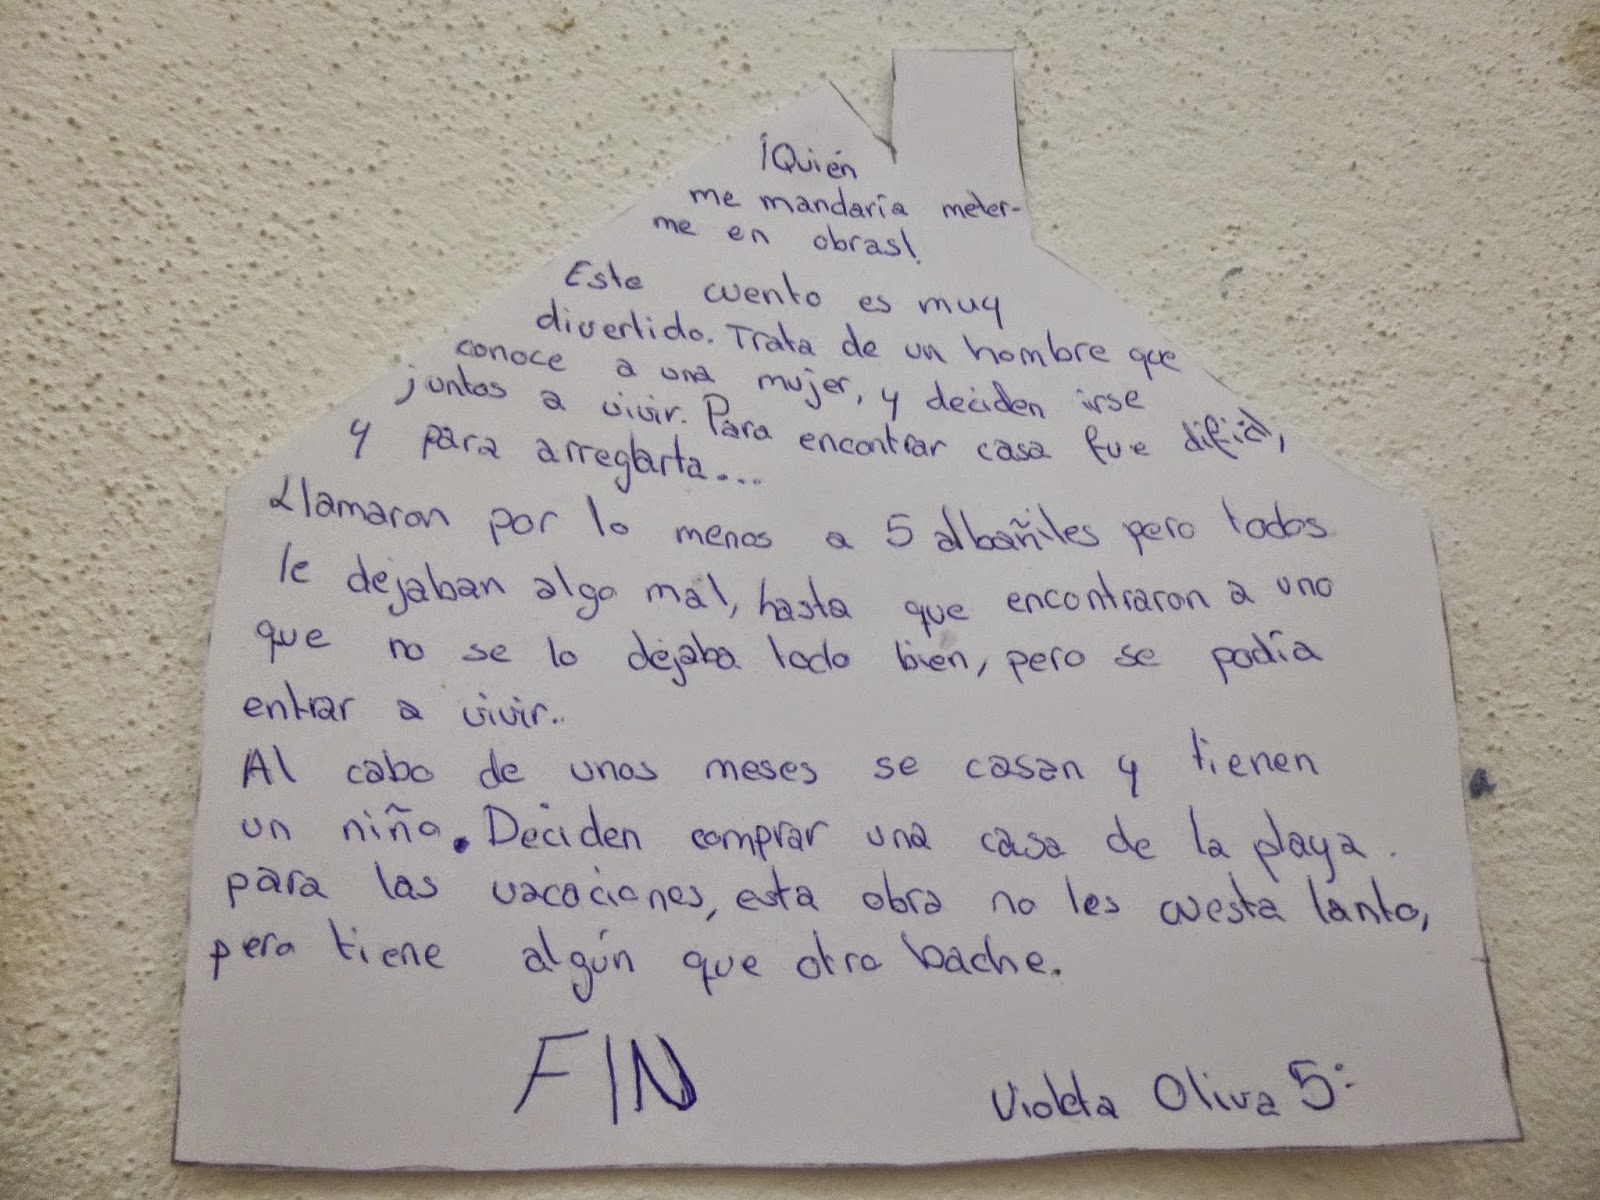 ¡Quién
me mandaría meter-
me en obras!
Este cuento es muy
divertido. Trata de un hombre que
conoce a una mujer, y deciden irse
juntos a vivir. Para encontrar casa fue difícil,
y para arreglarla...
Llamaron por lo menos a 5 albañiles pero todos
le dejaban algo mal, hasta que encontraron a uno
que no se lo dejaba todo bien, pero se podía
entrar a vivir..
Al cabo de unos meses se casan y tienen
un niño. Deciden comprar una casa de la playa.
para las vacaciones, esta obra no les cuesta tanto,
pero tiene algún que otro bache.
FIN
Violeta Oliva 5º